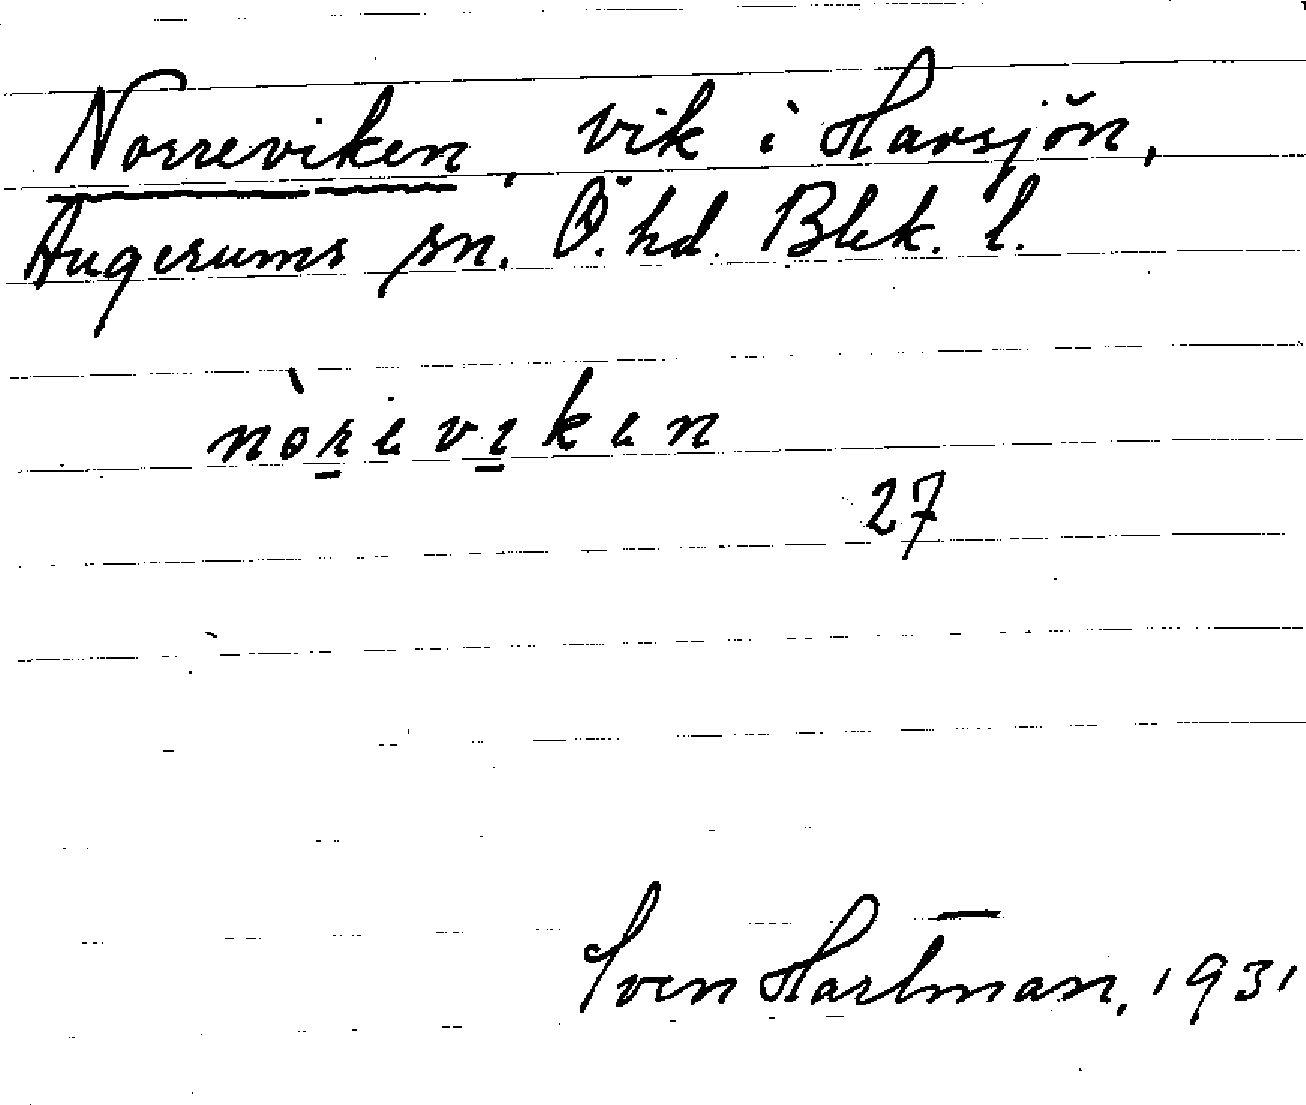 Norreviken, vik i Havsjön,
Augerums sn. Ö. hd. Blek. l.
nòreviken
27
Sven Hartman, 1931